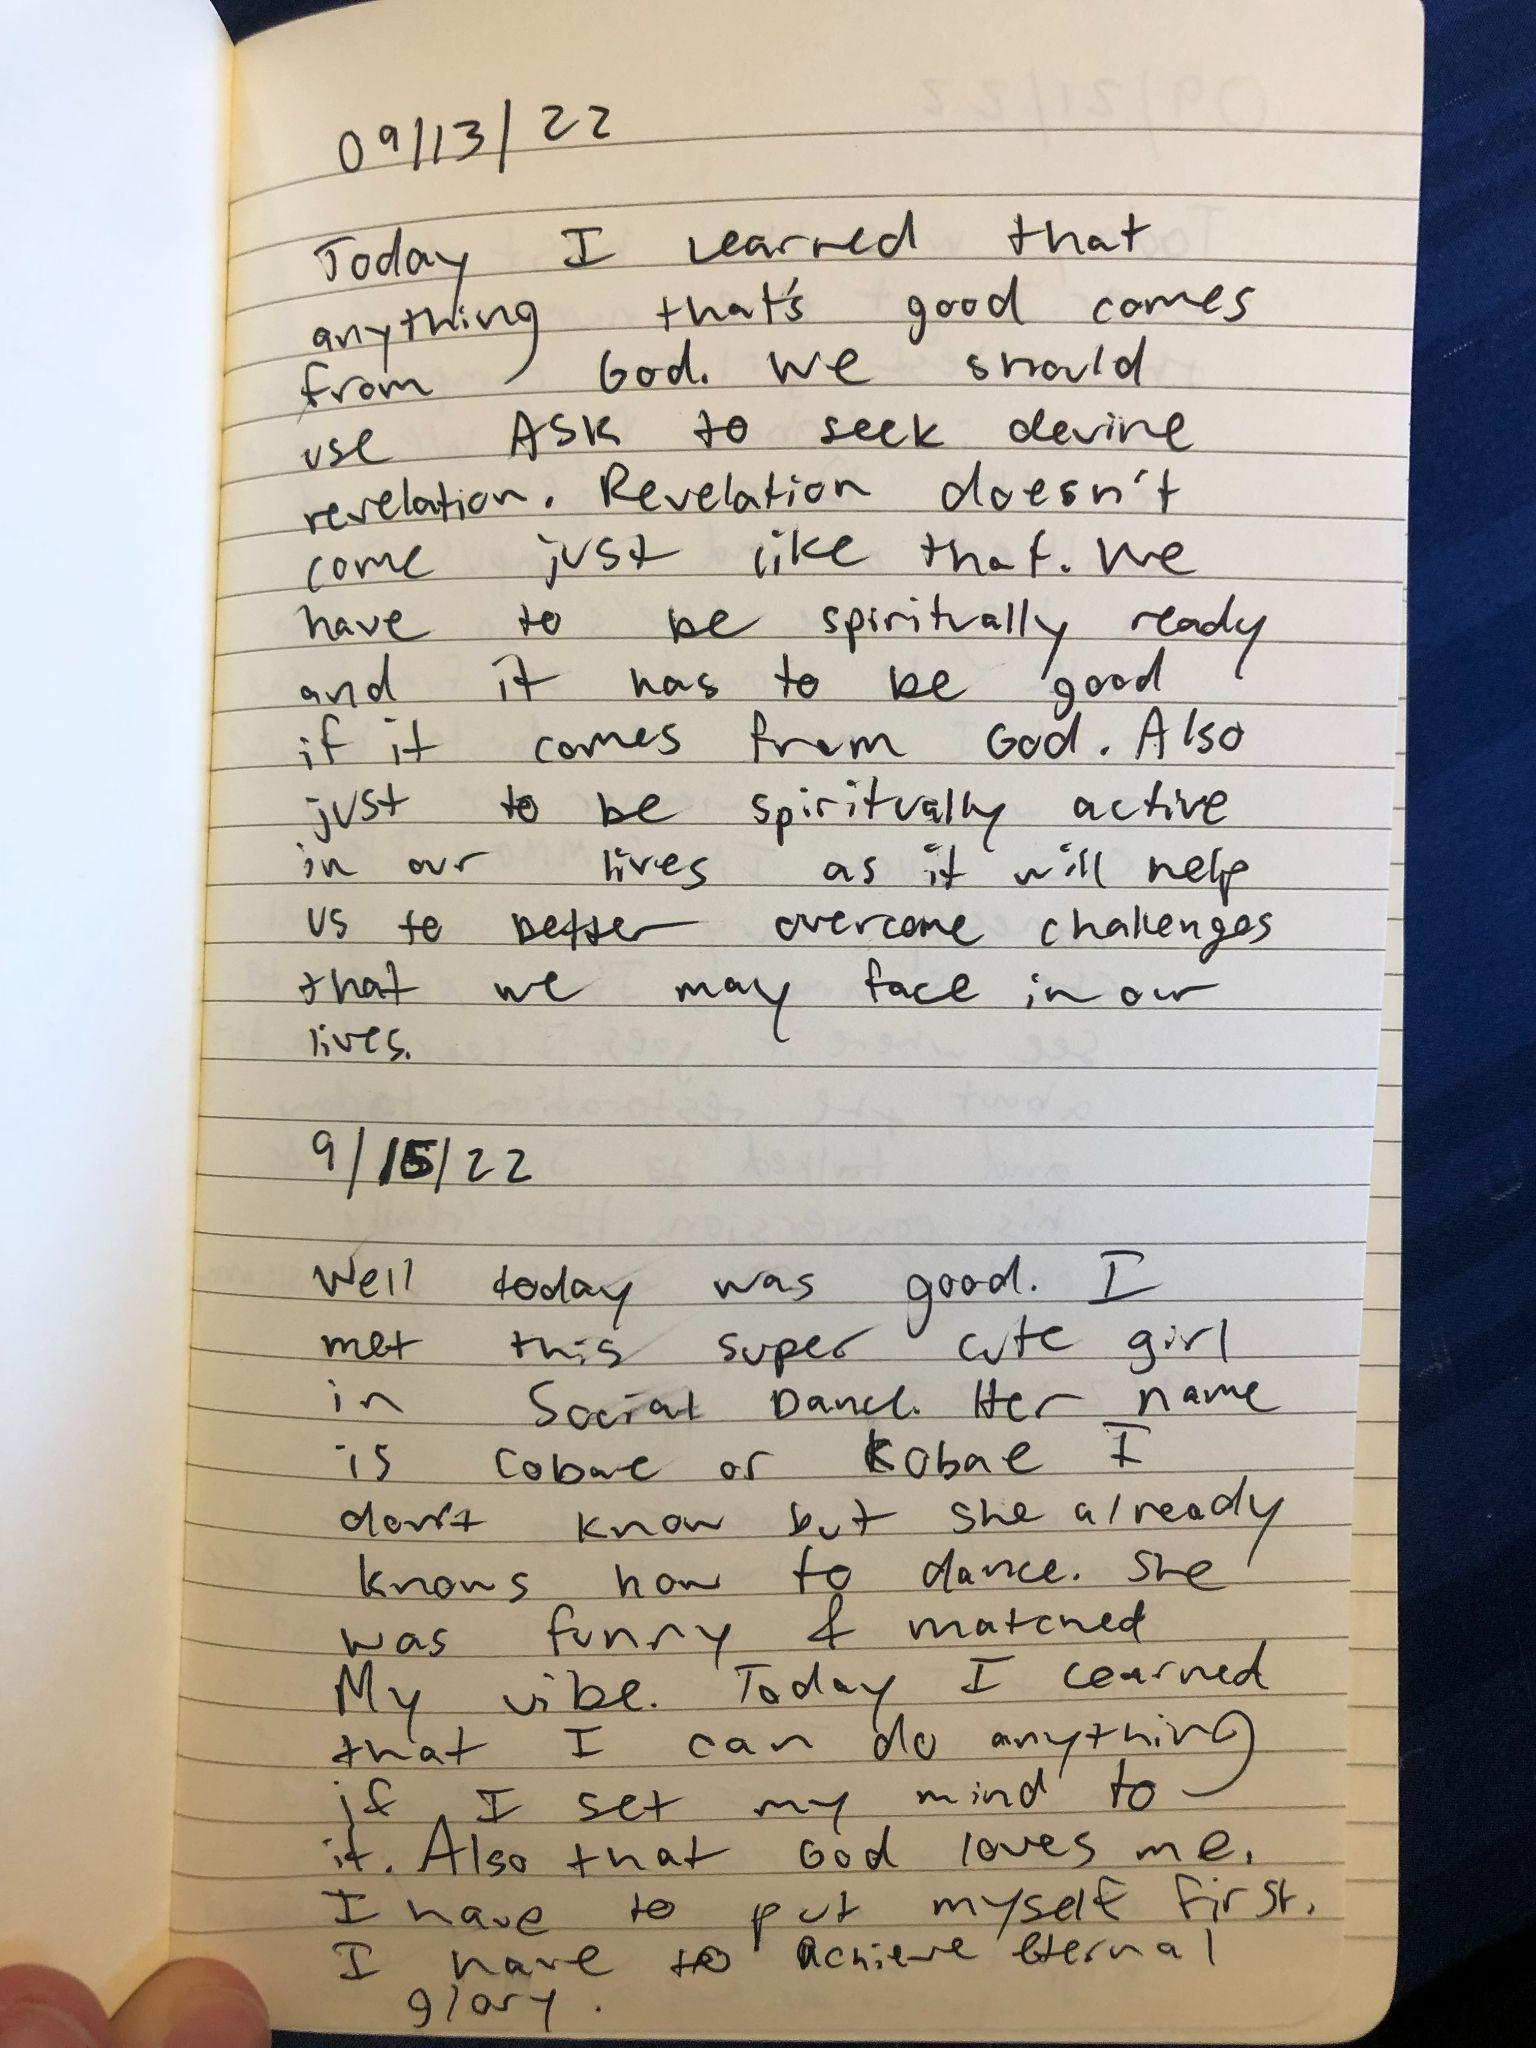 09/13/22
Today I Learned that
anything that's good comes
from God. We should
use ASK to seek devine
revelation. Revelation doesn't
come just like that. We
have to be spiritually ready
and it has to be good
if it comes from God. Also
just to be spiritually active
in our lives as it will help
us to better overcome challenges
that we may face in our
lives.
9/15/22
Well today was good. I
met this super cute girl
in Social Dance. Her name
is Cobae or Kobae I
don't know but she already
knows how to dance. She
was funny & matched
My vibe. Today I Learned
that I can do anything
if I set my mind to
it. Also that God loves me.
I have to put myself first.
I have to Achieve Eternal
glory.